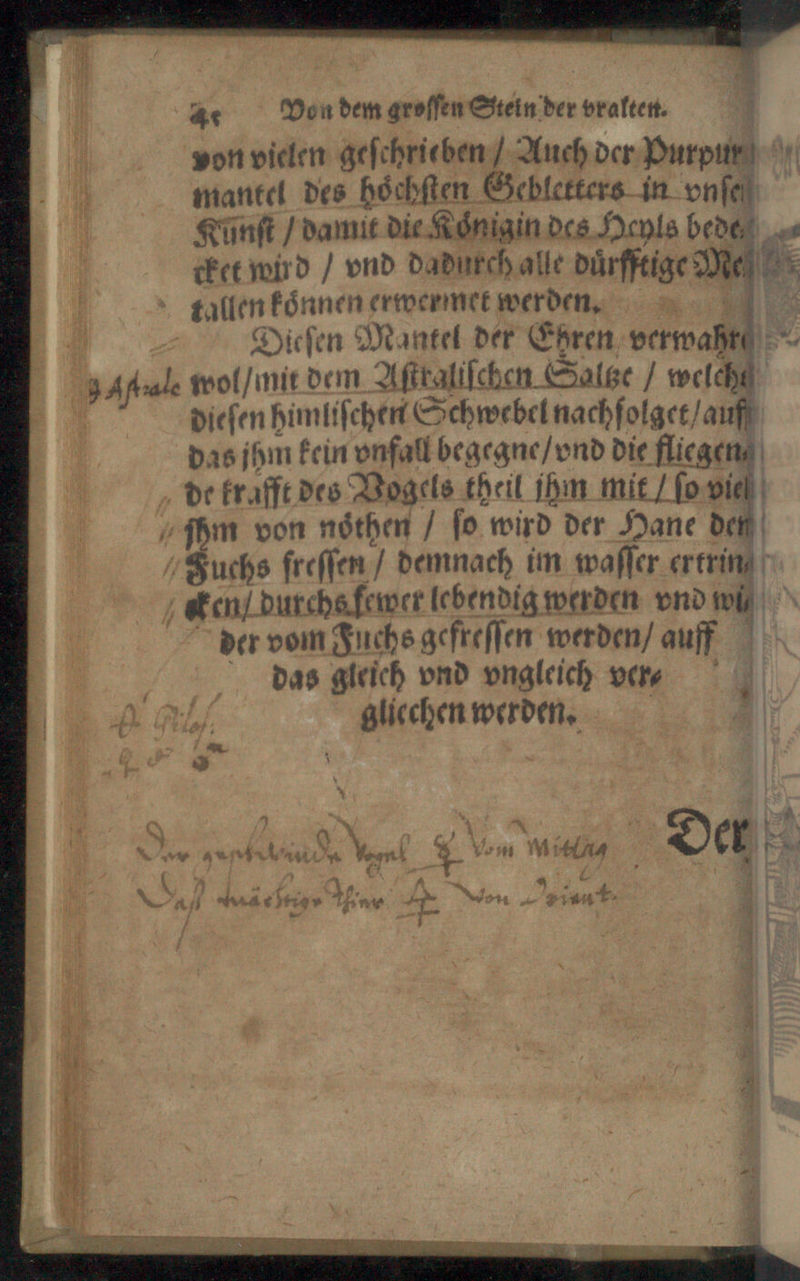 Von dem grossen Stein der vralten.
von vielen geschrieben / Auch der Purpur
mantel des höchsten Gebietters in vnse
Kunst / damit die Königin des Heyls bede
cket wird / vnd dadurch alle dürfftige Me
tallen können erwermet werden.
Diesen Mantel der Ehren verwahre
Astrale wol / mit dem Astralischen Saltze / welche
diesen himlischen Schwebel nachfolget / auff
das jhm kein vnfall begegne / vnd die fliegen⸗
de krafft des Vogels theil jhm mit / so viel
jhm von nöthen / so wird der Hane den
Fuchs fressen / demnach im wasser ertrin⸗
cken / durchs fewer lebendig werden vnd wi⸗
der vom Fuchs gefressen werden / auff
das gleich vnd vngleich ver⸗
gliechen werden.
Der
Der Vogel ☿ Vom Mittag
Daß mächtige Thier von Orient